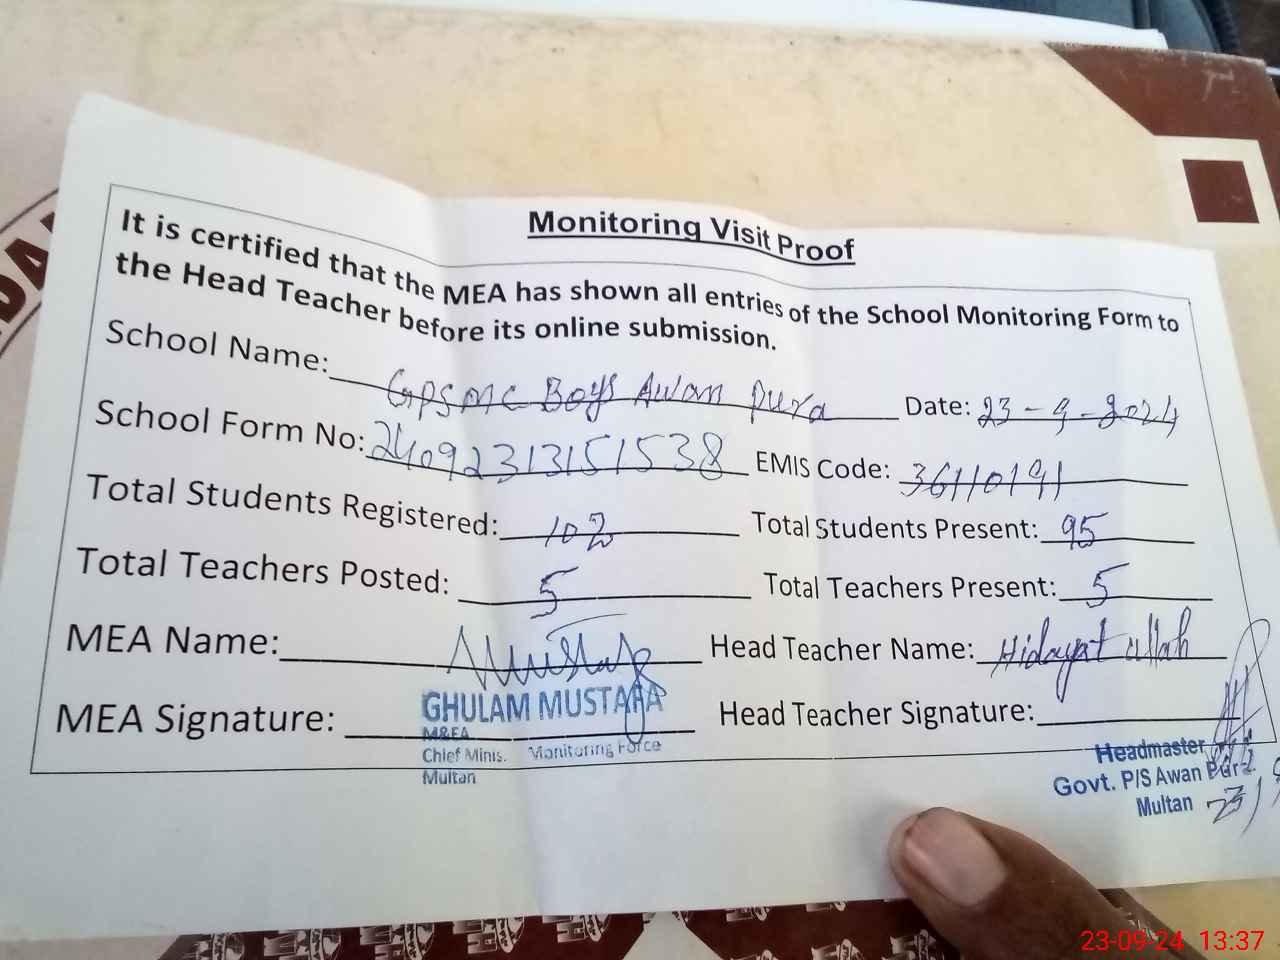 Monitoring Visit Proof
It is certified that the MEA has shown all entries of the School Monitoring Form to
the Head Teacher before its online submission.
School Name: GPSMC Boys Awan Pura Date: 23-9-2024
School Form No: 24092313151538 EMIS Code: 36110191
Total Students Registered: 102 Total Students Present: 95
Total Teachers Posted: 5 Total Teachers Present: 5
MEA Name: Head Teacher Name: Hidayat ullah
MEA Signature: Head Teacher Signature:
GHULAM MUSTAFA
M&EA
Chief Minis. Monitoring Force
Multan
Headmaster
Govt. P/S Awan Pura
Multan
23-09-24 13:37